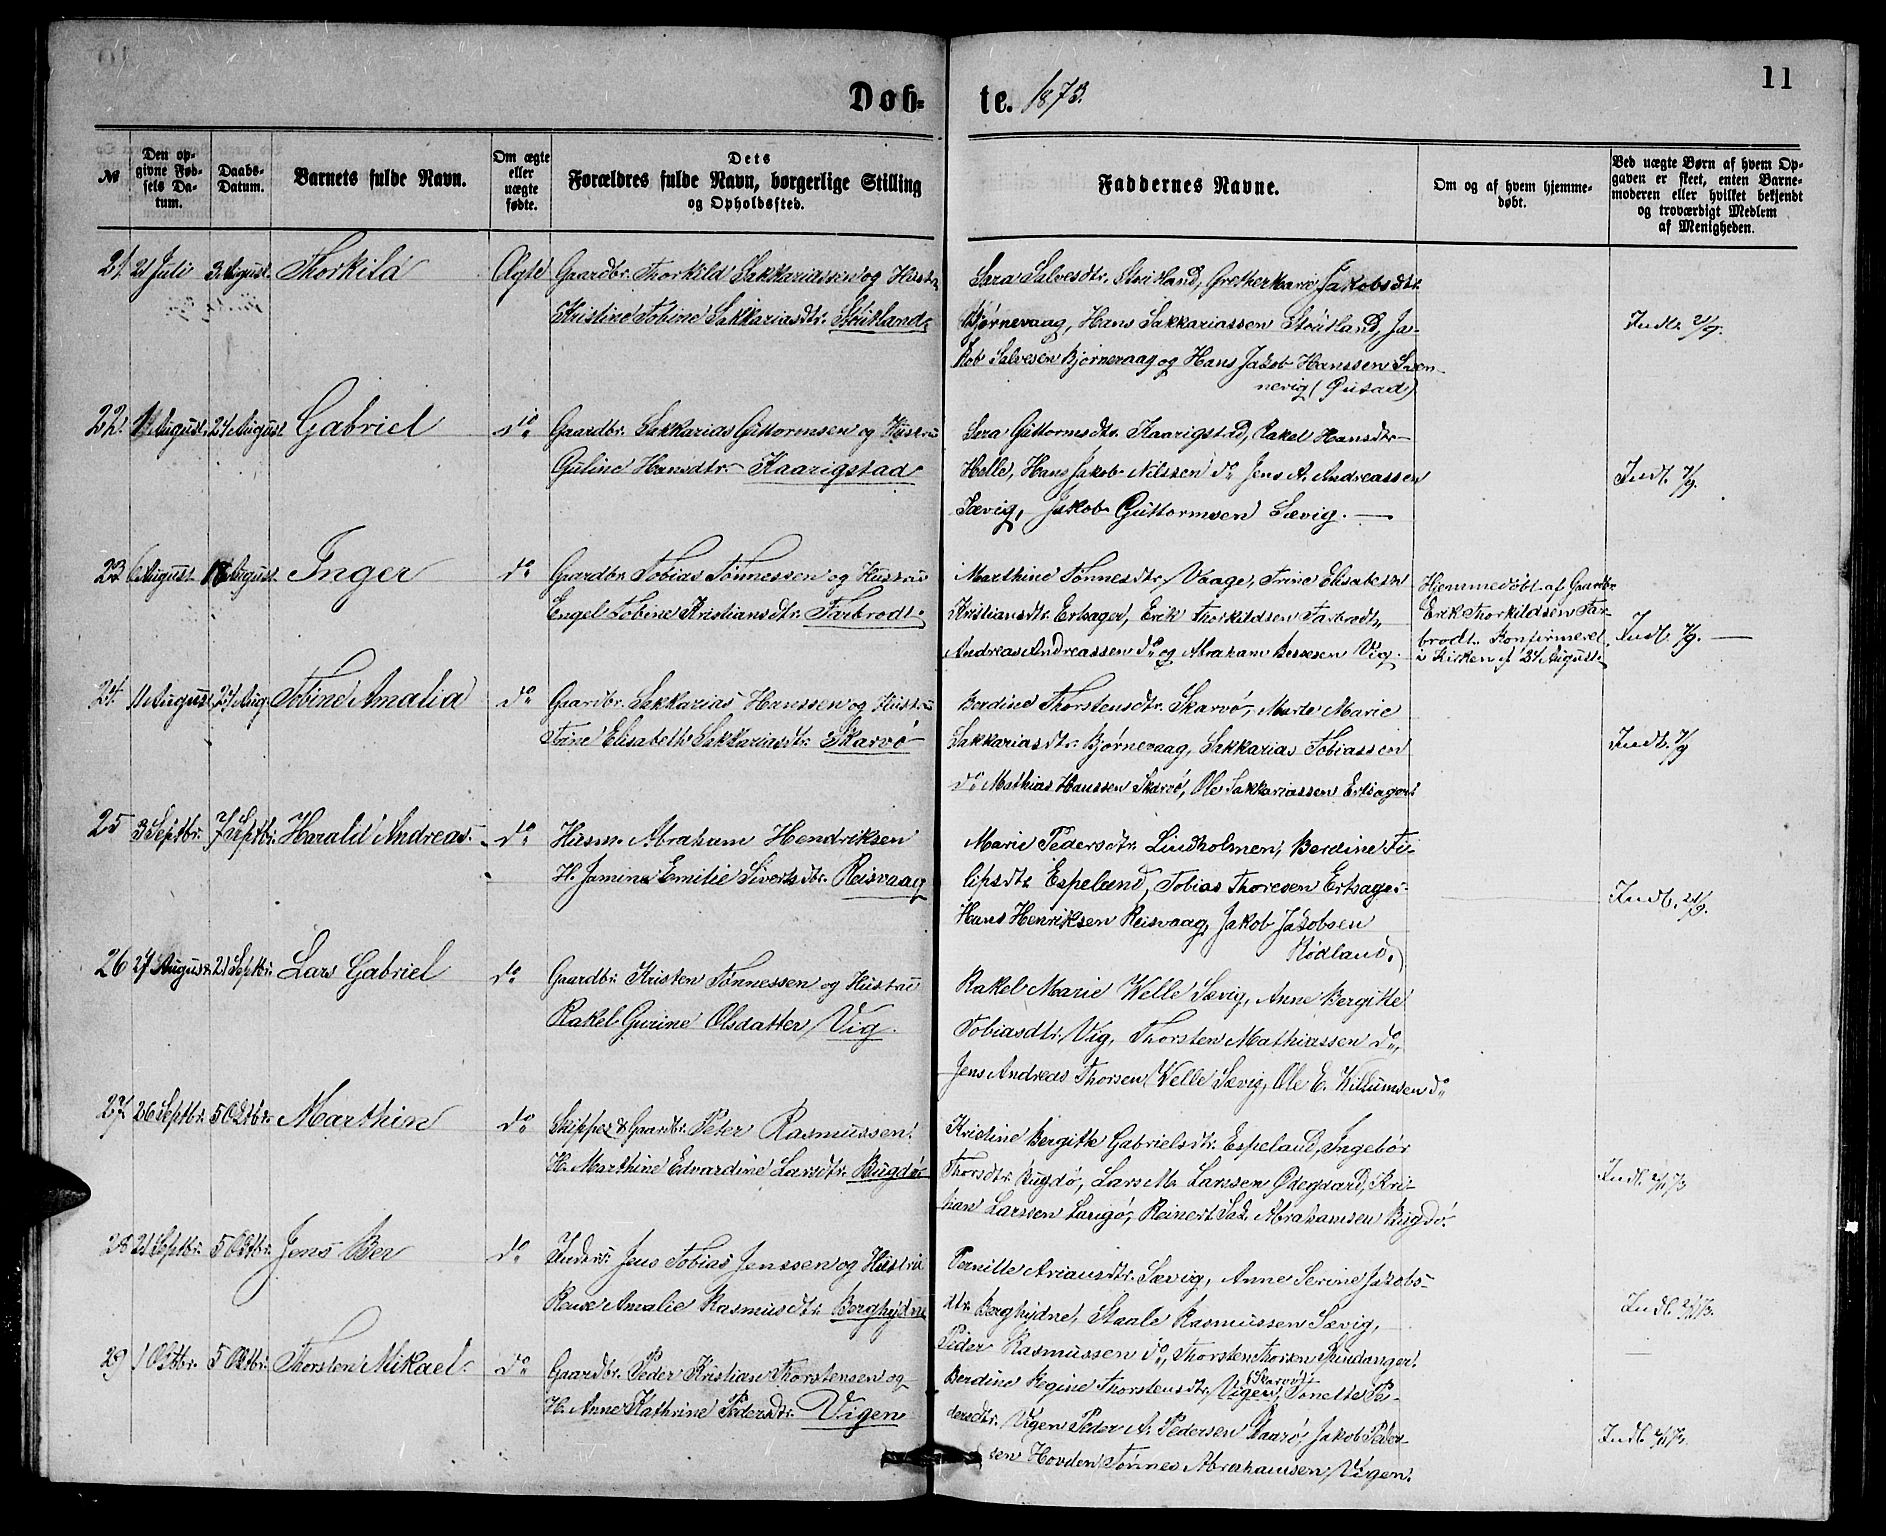 11
Døb- te. 1873.
№
Den opgivne Fødsels Datum.
Daabs-Datum.
Barnets fulde Navn.
Om ægte eller uægte fødte.
Dets Forældres fulde Navn, borgerlige Stilling og Opholdssted.
Faddernes Navne.
Om og af hvem hjemmedøbt.
Ved uægte Børn af hvem Opgaven er skeet, enten Barnemoderen eller hvilket bekjendt og troværdigt Medlem af Menigheden.
21. 21 Juli 3 August. Thorkild Ægte Gaardbr. Thorkild Sakkariassen og Hustru
Kristine Tobine Sakkariasdtr. Støitland.
Sara Salvesdtr. Støitland, Grethe Marie Jakobsdtr.
Bjørnevaag, Hans Sakkariassen Støitland, Ja-
kob Salvesen Bjørnevaag og Hans Jakob Hanssen Svennevig
Indb. 21/9.
22. August. 24 August Gabriel do Gaardbr. Sakkarias Guttormsen og Hustru
Guline Hansdtr. Kaarigstad
Sara Guttormsdtr. Kaarigstad, Rakel Hansdtr.
Helle, Hans Jakob Nilssen do Jens A. Andreassen
Sævig, Jakob Guttormsen Sævig.
Indb. 7/9.
23 6 August August. Inger do Gaardbr. Tobias Tønnessen og Hustru
Engel Tobine Kristiansdtr. Farbrodt.
Marthine Tønnesdtr. Vaage, Trine Elisabeth
Kristiansdtr. Ertsager, Erik Thorkildsen Farbrodt,
Andreas Andreassen do og Abraham Bernsen Vig.
Hjemmedøbt af Gaardbr.
Erik Thorkildsen Far-
brodt. Konfirmeret
i Kirken 24 August
Indb. 7/9.
24. 11 August 24 Aug. Tobine Amalia do Gaardbr. Sakkarias Hanssen og Hustru
Trine Elisabeth Sakkariasdtr. Skarvø
Berdine Thorstensdtr. Skarvø, Marte Marie
Sakkariasdtr. Bjørnevaag, Sakkarias Tobiassen
do Mathias Hanssen Skarvø, Ole Sakkariassen Ertsager.
Indb. 7/9
25 3 Septbr. 7 Septbr. Harald Andreas. do Husm. Abraham Hendriksen
H. Jamine Emilie Sivertsdtr. Reisvaag
Marie Pedersdtr. Lindholmen, Berdine Fi-
lipsdtr. Espeland, Tobias Thoresen Ertsager.
Hans Henriksen Reisvaag, Jakob Jakobsen
Rødland.
Indb. 21/9.
26 24 August. 21 Septbr. Lars Gabriel do Gaardbr. Kristen Tønnessen og Hustru
Rakel Gurine Olsdatter Vig.
Rakel Marie Welle Sævig, Anne Bergitte
Tobiasdtr. Vig, Thorsten Mathiassen do,
Jens Andreas Thorsen Welle Sævig, Ole E. Willumsen do
27. 26 Septbr. 5 Oktbr. Marthin do Skipper & Gaardbr. Peter Rasmussen.
H. Marthine Edvardine Larsdtr. Bugdø
Kristine Bergitte Gabrielsdtr. Espeland, Ingebor
Thorsdtr. Bugdø, Lars M. Larssen Ødegaard, Kri-
stian Larssen Langø, Reinert Sak. Abrahamsen Bugdø.
28 21 Septbr. 5 Oktbr. Jens Ber do Inders. Jens Tobias Jenssen og Hustru
Amalie Rasmusdtr. Berghydne
Pernille Ariansdtr. Sævig, Anne Serine Jakobs-
dtr. Berghydne, Staale Rasmussen Sævig,
Peder Rasmussen do, Thorsten Thorsen Spindanger.
29 1 Oktbr. 5 Oktbr. Thorsten Mikael. do Gaardbr. Peder Kristian Thorstensen og
H. Anne Kathrine Pedersdtr. Vigen
Berdine Regine Thorstensdtr. Vigen, Tonette Pe-
dersdtr. Vigen Peder A. Pedersen Raarø, Jakob Peder-
sen Hovden, Tønnes Abrahamsen Vigen.